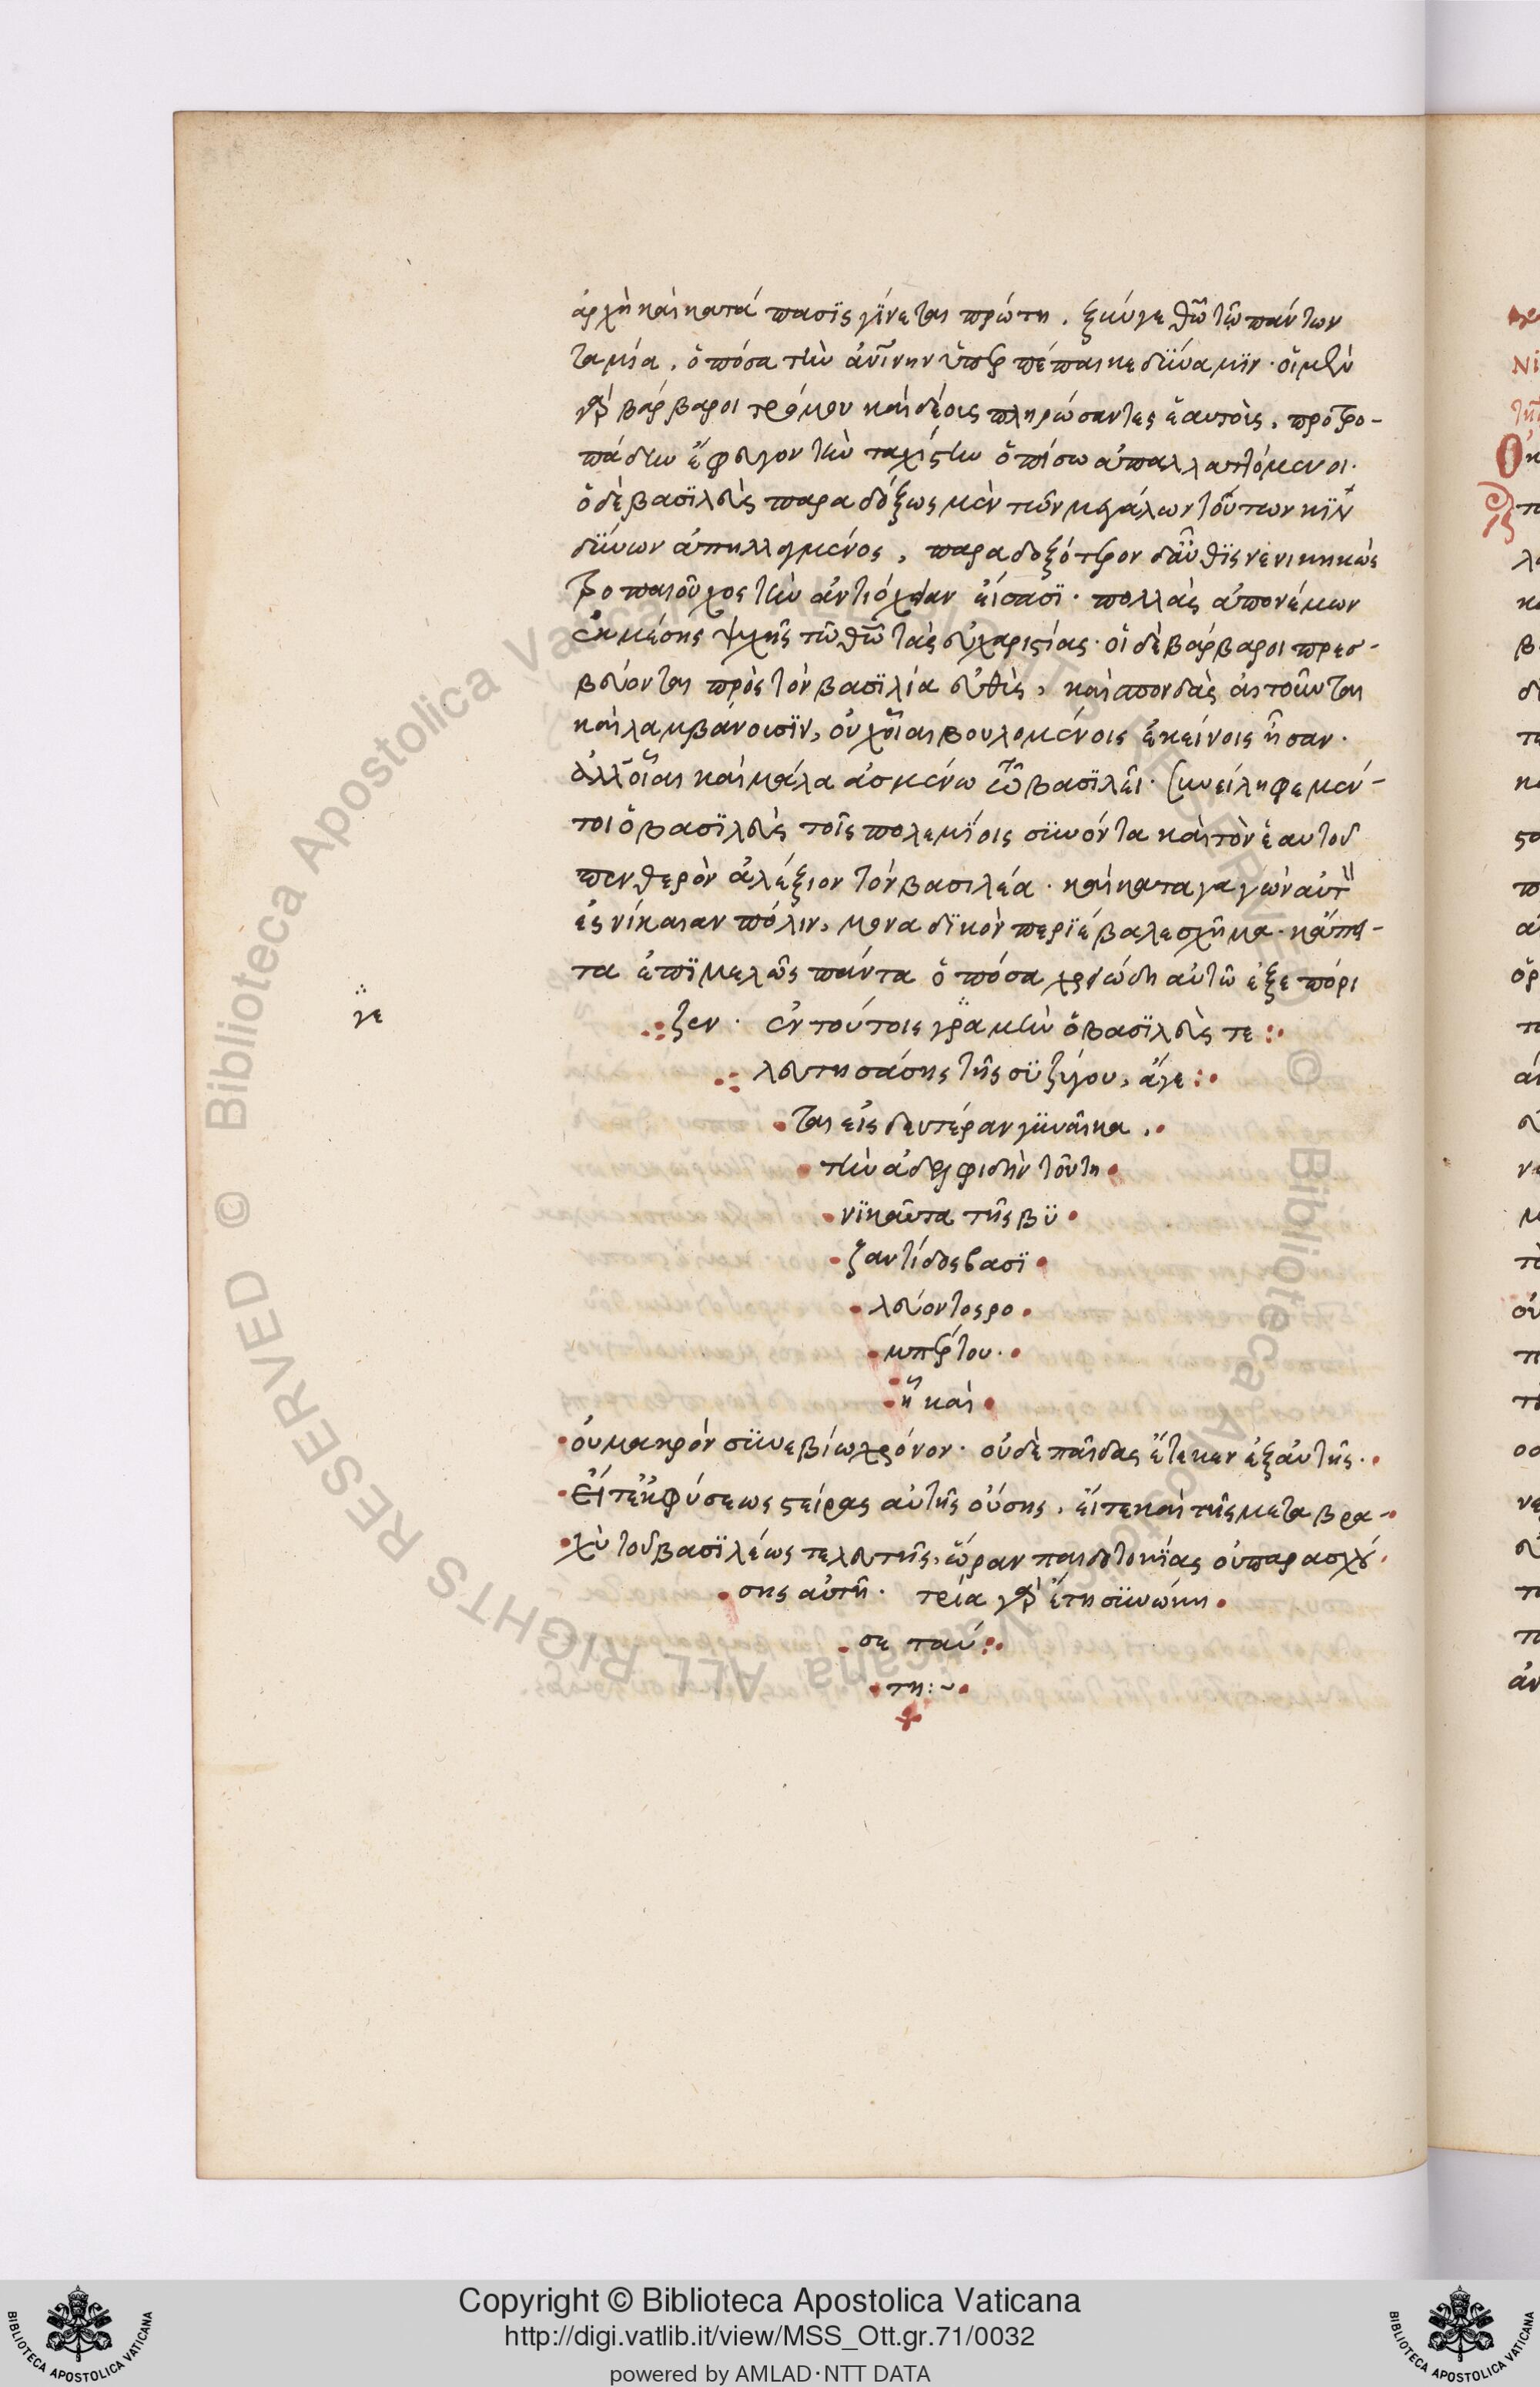 ἀρχὴ καὶ κατάπασϊς γίνεται πρώτη. ξκύγε θῶ τῶ πάντων
ταμία. ὁπόσα τὴν ὑπὲρ πέπαικε δύναμϊν· οἱ μὲν
γὰρ βάρβαροι τρόμου καὶ δέους πληρώσαντες ἑαυτοὺς, προτρο-
πάδην ἔφευγον τὴν ταχίστην ὀπίσω ἀπαλλαττόμενοι.
ὁ δὲ βασϊλεὺς παραδόξως μὲν τῶν μεγάλων τούτων κϊν
δύνων ἀπηλλαγμένος, παραδοξότερον δ' αὖθϊς νενικηκὼς
τροπαιοῦχος τὴν ἀντιόχειαν εἴσεισϊ. πολλὰς ἀπονέμων
ἐκ μέσης ψυχῆς τῶ θῶ τὰς εὐχαριστίας· οἱ δὲ βάρβαροι πρεσ-
βεύονται πρὸς τὸν βασϊλέα εὐθὺς, καὶ σπονδὰς αἰτοῦνται
καὶ λαμβάνουσϊν, οὐχ οἷαι βουλομένοις ἐκείνοις ἦσαν.
ἀλλ' οἷαι καὶ μάλα ἀσμένω τῶ βασϊλεῖ. συνείληφε μέν-
τοι ὁ βασϊλεὺς τοῖς πολεμϊοις σϋνόντα καὶ τὸν ἑαυτοῦ
πενθερὸν ἀλέξιον τὸν βασιλέα. καὶ καταγαγὼν αὐτὸν
ἐς νίκαιαν πόλιν, μοναδϊκὸν περϊέβαλε σχῆμα. κἄπει-
τα ἐπϊμελῶς πάντα ὁπόσα χρειώδη αὐτῶ ἐξεπόρι
ζεν. ἐν τούτοις γράμμὴν ὁ βασϊλεὺς τε
γε
λευτησάσης τῆς σϋζύγου, ἄγε
ται εἰς δευτέραν γϋναῖκα.
τὴν ἀδελφιδὴν τοῦ τη
νϊκαῦτα τῆς βϋ
ζαντίδος βασϊ
λεύοντος ρο
μπέρτου.
ἧ καὶ
οὐ μακρὸν σϋνεβίω χρόνον. οὐδὲ παῖδας ἔτεκεν ἐξ αὐτῆς.
Εἴτ' ἐκ φύσεως στείρας αὐτῆς οὔσης, εἴτε καὶ τῆς μετα βρα-
χὺ τοῦ βασϊλέως τελευτῆς, ὥραν παιδοτοκϊας οὐ παρασχού
σης αὐτῆ. τρία γὰρ ἔτη σϋνώκη
σε ταύ
τη:~
Copyright © Biblioteca Apostolica Vaticana
http://digi.vatlib.it/view/MSS_Ott.gr.71/0032
powered by AMLAD·NTT DATA